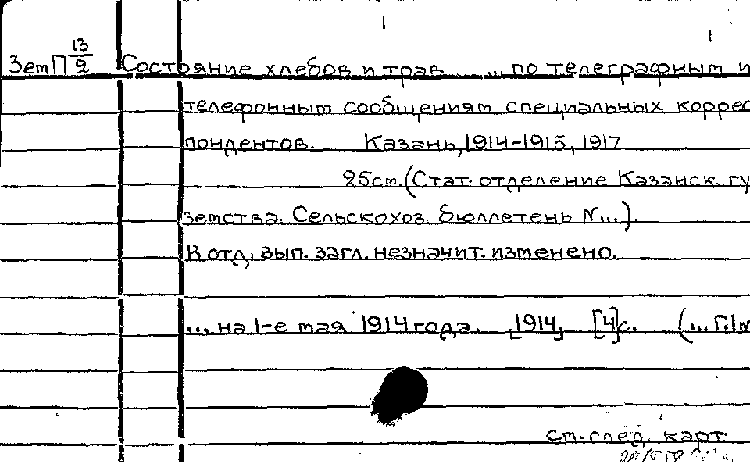 ЗемП 13/9 Состояние хлебов и трав ... по телеграфным и
телефонным сообщениям специальных коррес
пондентов. Казань, 1914-1915, 1917
25см. (Стат. отделение Казанск. гу
земства. Сельскохоз. бюллетень N...).
В отд. вып. загл. незначит. изменено.
... на 1-е мая 1914 года. [1914] [4]с. (... Г.1
см. след. карт.